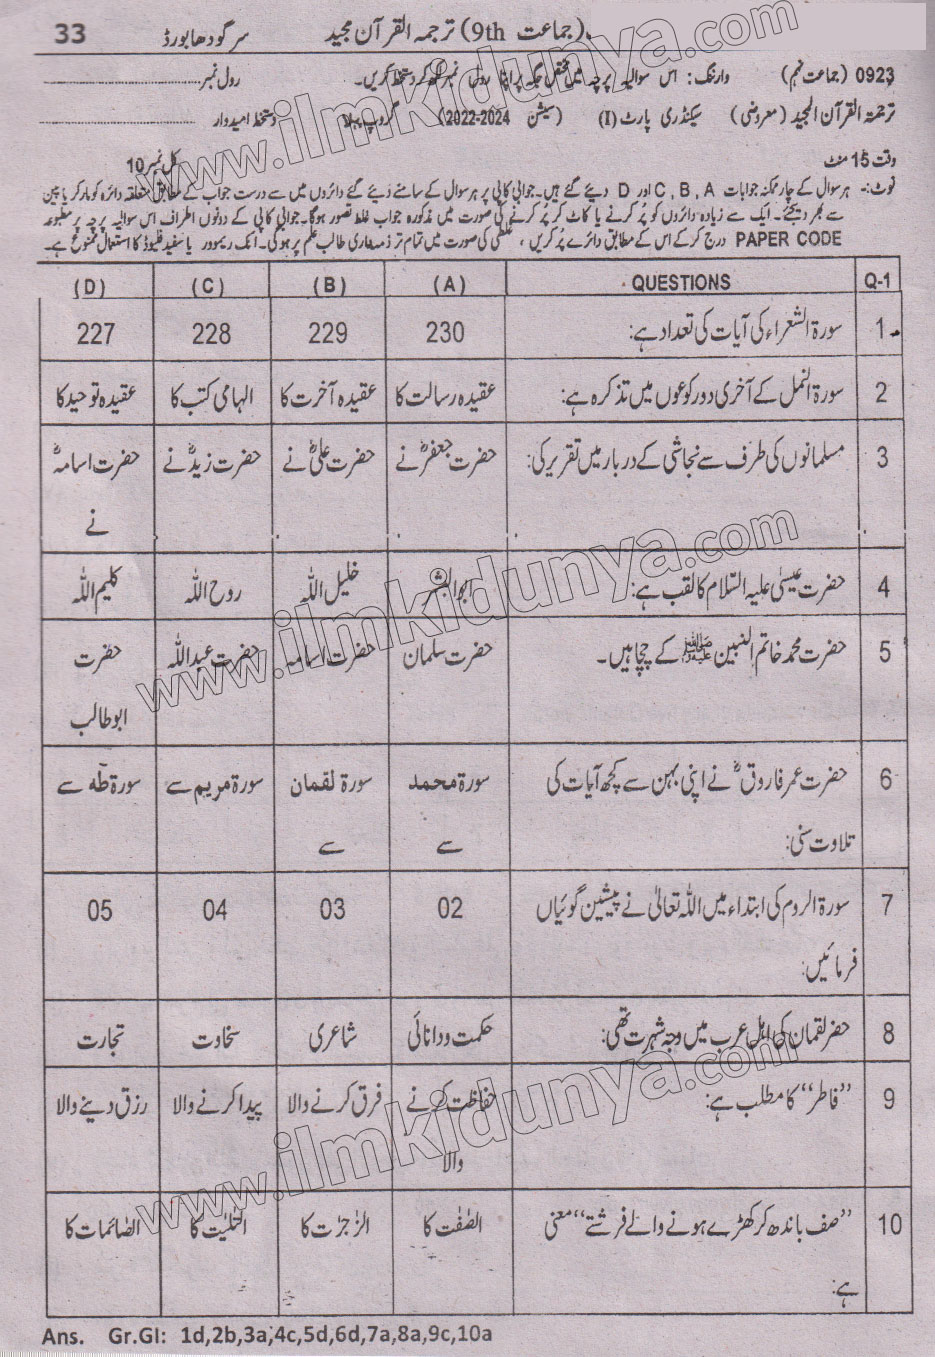 33 سرگودھا بورڈ (جماعت 9th) ترجمہ القرآن مجید
0923 (جماعت نہم) وارننگ: اس سوالیہ پرچہ میں مختص جگہ پر اپنا رول نمبر لکھ کر دستخط کریں۔ رول نمبر
ترجمۃ القرآن المجید (معروضی) سیکنڈری پارٹ (I) (سیشن 2022-2024) گروپ پہلا دستخط امیدوار
وقت 15 منٹ کل نمبر 10
نوٹ:- ہر سوال کے چار ممکنہ جوابات A , B , C اور D دیئے گئے ہیں۔ جوابی کاپی پر ہر سوال کے سامنے دیئے گئے دائروں میں سے درست جواب کے مطابق متعلقہ دائرہ کو مارکر یا پین
سے بھر دیجئے۔ ایک سے زیادہ دائروں کو پُر کرنے یا کاٹ کر پُر کرنے کی صورت میں مذکورہ جواب غلط تصور ہوگا۔ جوابی کاپی کے دونوں اطراف اس سوالیہ پرچہ پر مطبوعہ
PAPER CODE درج کر کے اس کے مطابق دائرے پُر کریں، غلطی کی صورت میں تمام تر ذمہ داری طالب علم پر ہوگی۔ انک ریموور یا سفید فلیوڈ کا استعمال ممنوع ہے۔
Q-1 QUESTIONS (A) (B) (C) (D)
1 سورۃ الشعراء کی آیات کی تعداد ہے: 230 229 228 227
2 سورۃ النمل کے آخری دو رکوعوں میں تذکرہ ہے: عقیدہ رسالت کا عقیدہ آخرت کا الہامی کتب کا عقیدہ توحید کا
3 مسلمانوں کی طرف سے نجاشی کے دربار میں تقریر کی: حضرت جعفرؓ نے حضرت علیؓ نے حضرت زیدؓ نے حضرت اسامہؓ
نے
4 حضرت عیسیٰ علیہ السّلام کا لقب ہے: ابو البشر خلیل اللہ روح اللہ کلیم اللہ
5 حضرت محمد خاتم النبین ﷺ کے چچا ہیں۔ حضرت سلمان حضرت اسامہ حضرت عبداللہ حضرت
ابوطالب
6 حضرت عمر فاروقؓ نے اپنی بہن سے کچھ آیات کی سورۃ محمد سورۃ لقمان سورۃ مریم سے سورۃ طٰہٰ سے
تلاوت سنی: سے سے
7 سورۃ الروم کی ابتداء میں اللہ تعالیٰ نے پیشین گوئیاں 02 03 04 05
فرمائیں:
8 حضر لقمان کی اہل عرب میں وجہ شہرت تھی: حکمت و دانائی شاعری سخاوت تجارت
9 ”فاطر“ کا مطلب ہے: حفاظت کرنے فرق کرنے والا پیدا کرنے والا رزق دینے والا
والا
10 ”صف باندھ کر کھڑے ہونے والے فرشتے“ معنی الصّٰفّٰت کا الزّٰجرٰت کا التّٰلیٰت کا الصّائمات کا
ہے:
Ans. Gr.GI: 1d,2b,3a,4c,5d,6d,7a,8a,9c,10a
www.ilmkidunya.com
www.ilmkidunya.com
www.ilmkidunya.com